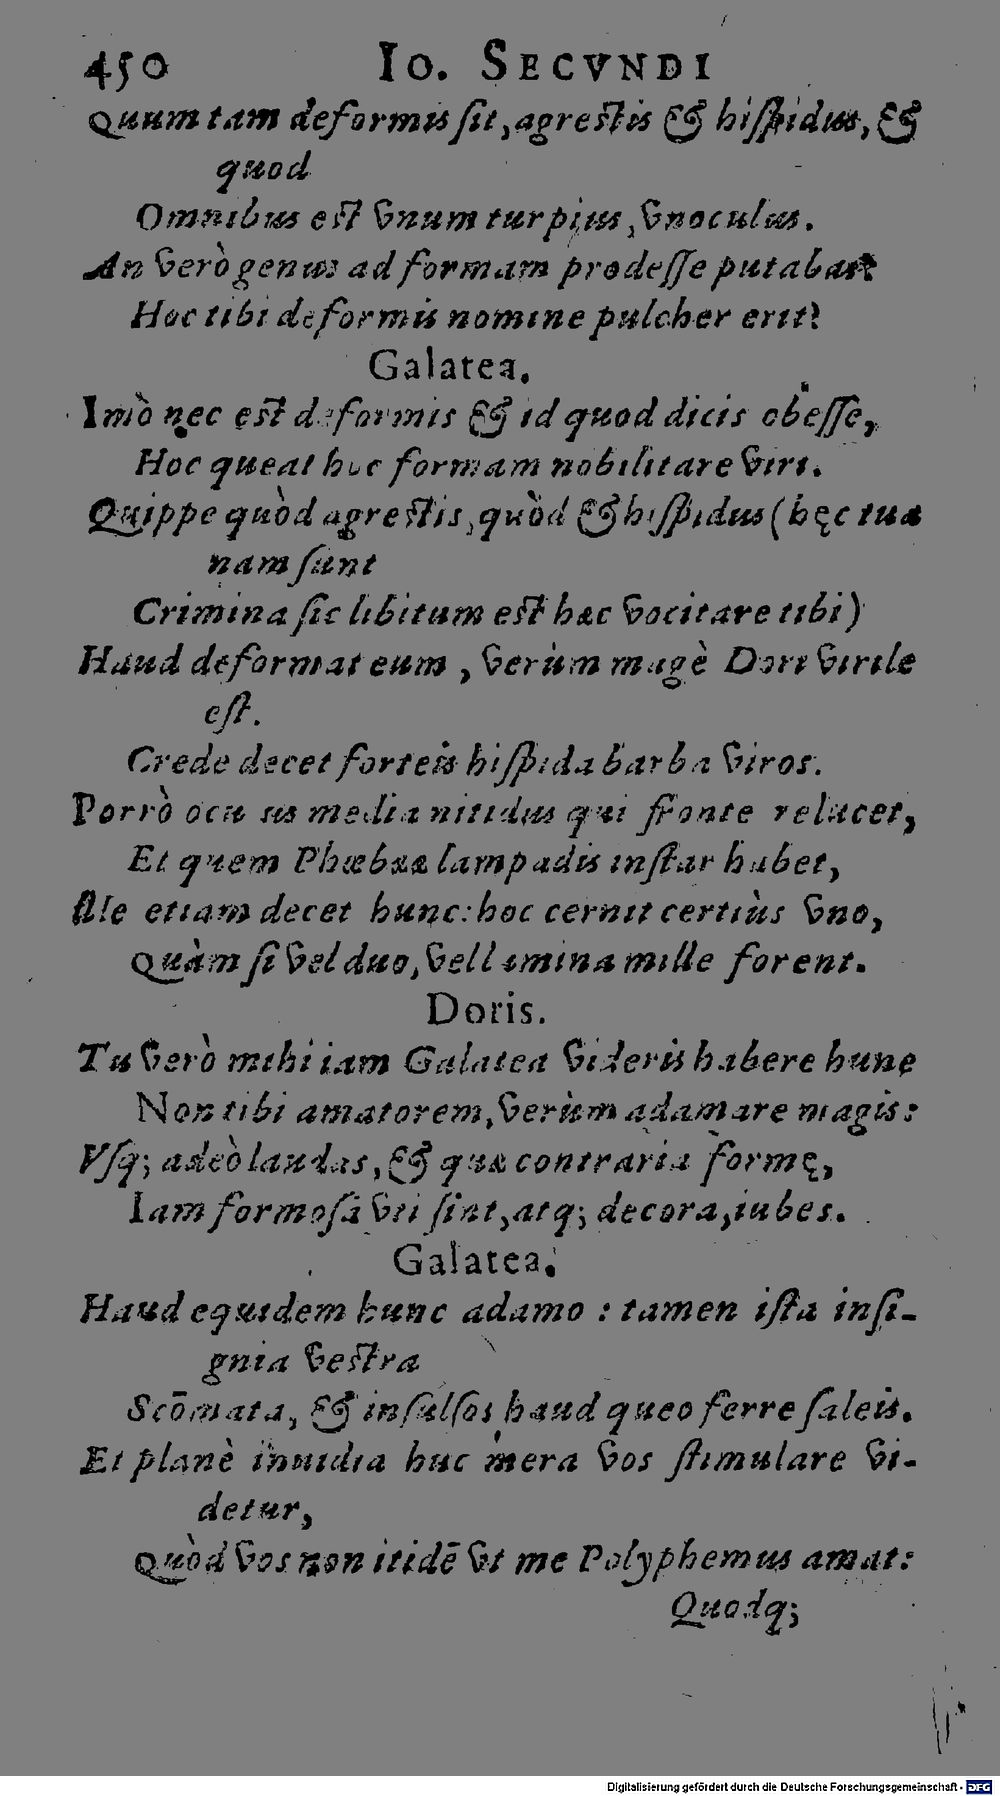 450 IO. SECVNDI
Quum tam deformis sit, agrestis & hispidus, &
quod
Omnibus est vnum turpius, vnoculus.
An verò genus ad formam prodesse putabas?
Hoc tibi deformis nomine pulcher erit?
Galatea.
Imò nec est deformis & id quod dicis obesse,
Hoc queat huc formam nobilitare viri.
Quippe quòd agrestis, quòd & hispidus (hęc tua
nam sunt
Crimina sic libitum est hæc vocitare tibi)
Haud deformat eum, verùm magè Dori virile
est.
Crede decet forteis hispida barba viros.
Porrò oculus media nitidus qui fronte relucet,
Et quem Phœbææ lampadis instar habet,
Ille etiam decet hunc: hoc cernit certiùs vno,
Quàm si vel duo, vel lumina mille forent.
Doris.
Tu verò mihi iam Galatea videris habere hunc
Non tibi amatorem, verùm adamare magis:
Vsq; adeò laudas, & quæ contraria formę,
Iam formosa vti sint, atq; decora, iubes.
Galatea.
Haud equidem hunc adamo : tamen ista insi-
gnia vestra
Scōmata, & insulsos haud queo ferre saleis.
Et planè inuidia huc mera vos stimulare vi-
detur,
Quòd vos non itidē vt me Polyphemus amat:
Quodq;
Digitalisierung gefördert durch die Deutsche Forschungsgemeinschaft - DFG